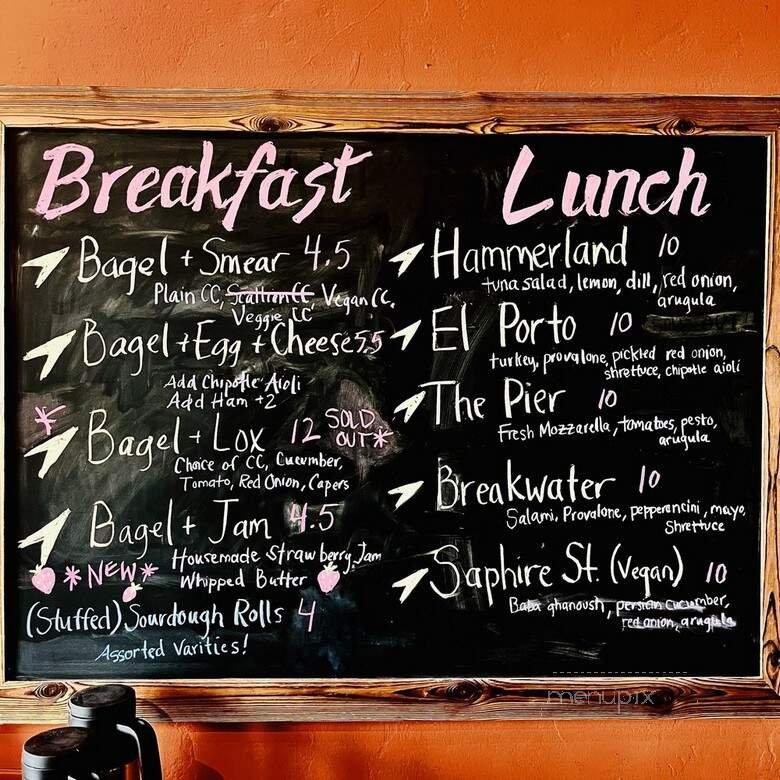 Breakfast
Bagel + Smear 4.5
Plain CC, Scallion CC, Vegan CC,
Veggie CC
Bagel + Egg + Cheese 5.5
Add Chipotle Aioli
Add Ham +2
* Bagel + Lox 12 SOLD OUT *
Choice of CC, Cucumber,
Tomato, Red Onion, Capers
Bagel + Jam 4.5
Housemade Strawberry Jam
*NEW* Whipped Butter
(Stuffed) Sourdough Rolls 4
Assorted Varities!
Lunch
Hammerland 10
tuna salad, lemon, dill, red onion,
arugula
El Porto 10
turkey, provalone, pickled red onion,
shrettuce, chipotle aioli
The Pier 10
Fresh Mozzarella, tomatoes, pesto,
arugula
Breakwater 10
Salami, Provalone, pepperoncini, mayo,
Shrettuce
Saphire St. (Vegan) 10
Baba ghanoush, persian cucumber,
red onion, arugula
menupix